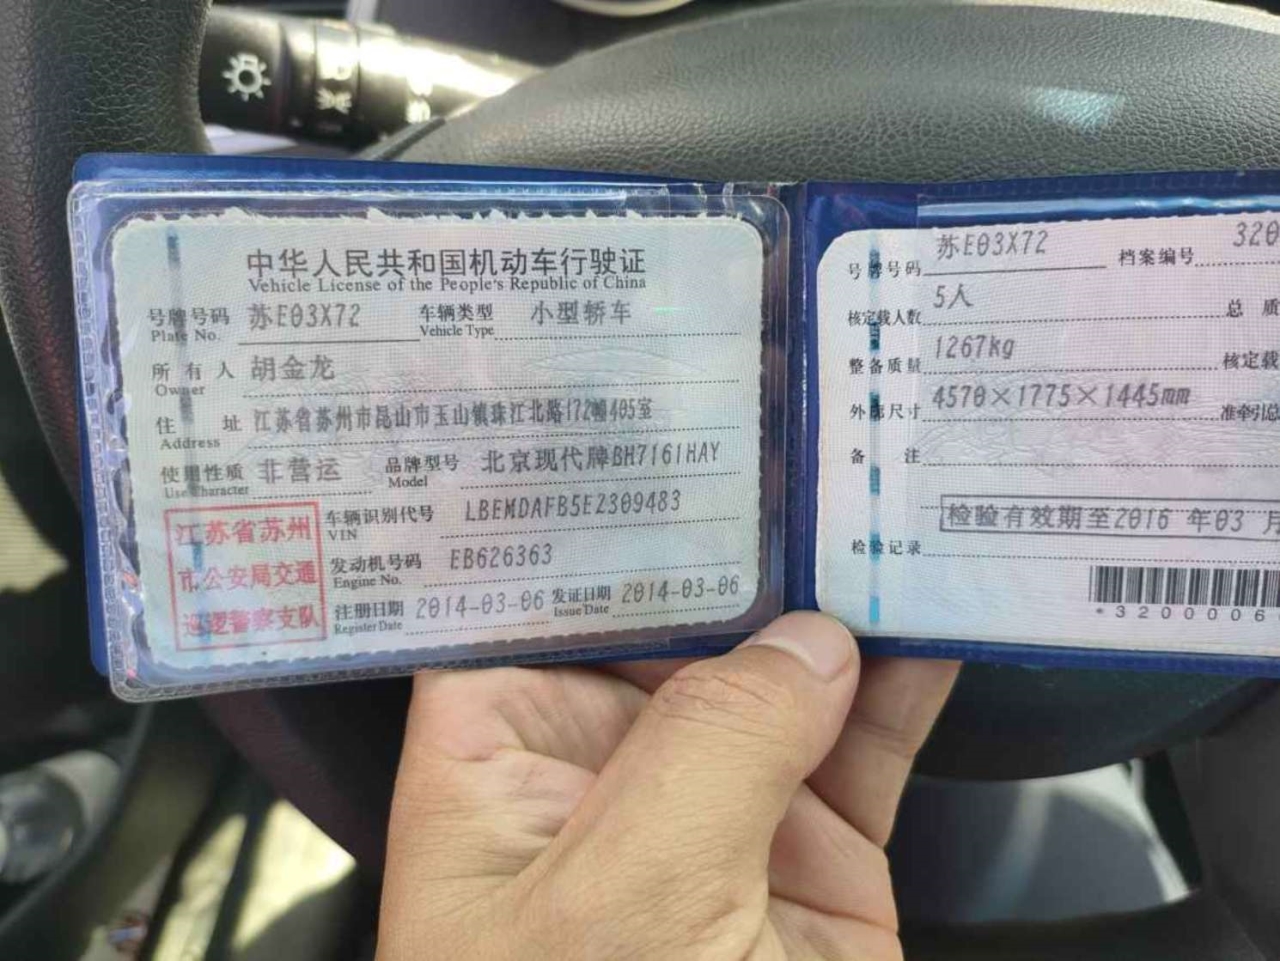 中华人民共和国机动车行驶证
Vehicle License of the People's Republic of China
号牌号码 苏E03X72 车辆类型 小型轿车
Plate No. Vehicle Type
所有人 胡金龙
Owner
住址 江苏省苏州市昆山市玉山镇珠江北路172 405室
Address
使用性质 非营运 品牌型号 北京现代牌BH7161HAY
Use Character Model
江苏省苏州
市公安局交通
巡逻警察支队
车辆识别代号 LBEMDAFB5EZ309483
VIN
发动机号码 EB626363
Engine No.
注册日期 2014-03-06 发证日期 2014-03-06
Register Date Issue Date
号牌号码 苏E03X72 档案编号 320
核定载人数 5人 总质
整备质量 1267kg 核定载
外廓尺寸 4570×1775×1445mm 准牵引总
备注
检验有效期至2016年03月
检验记录
*3200006